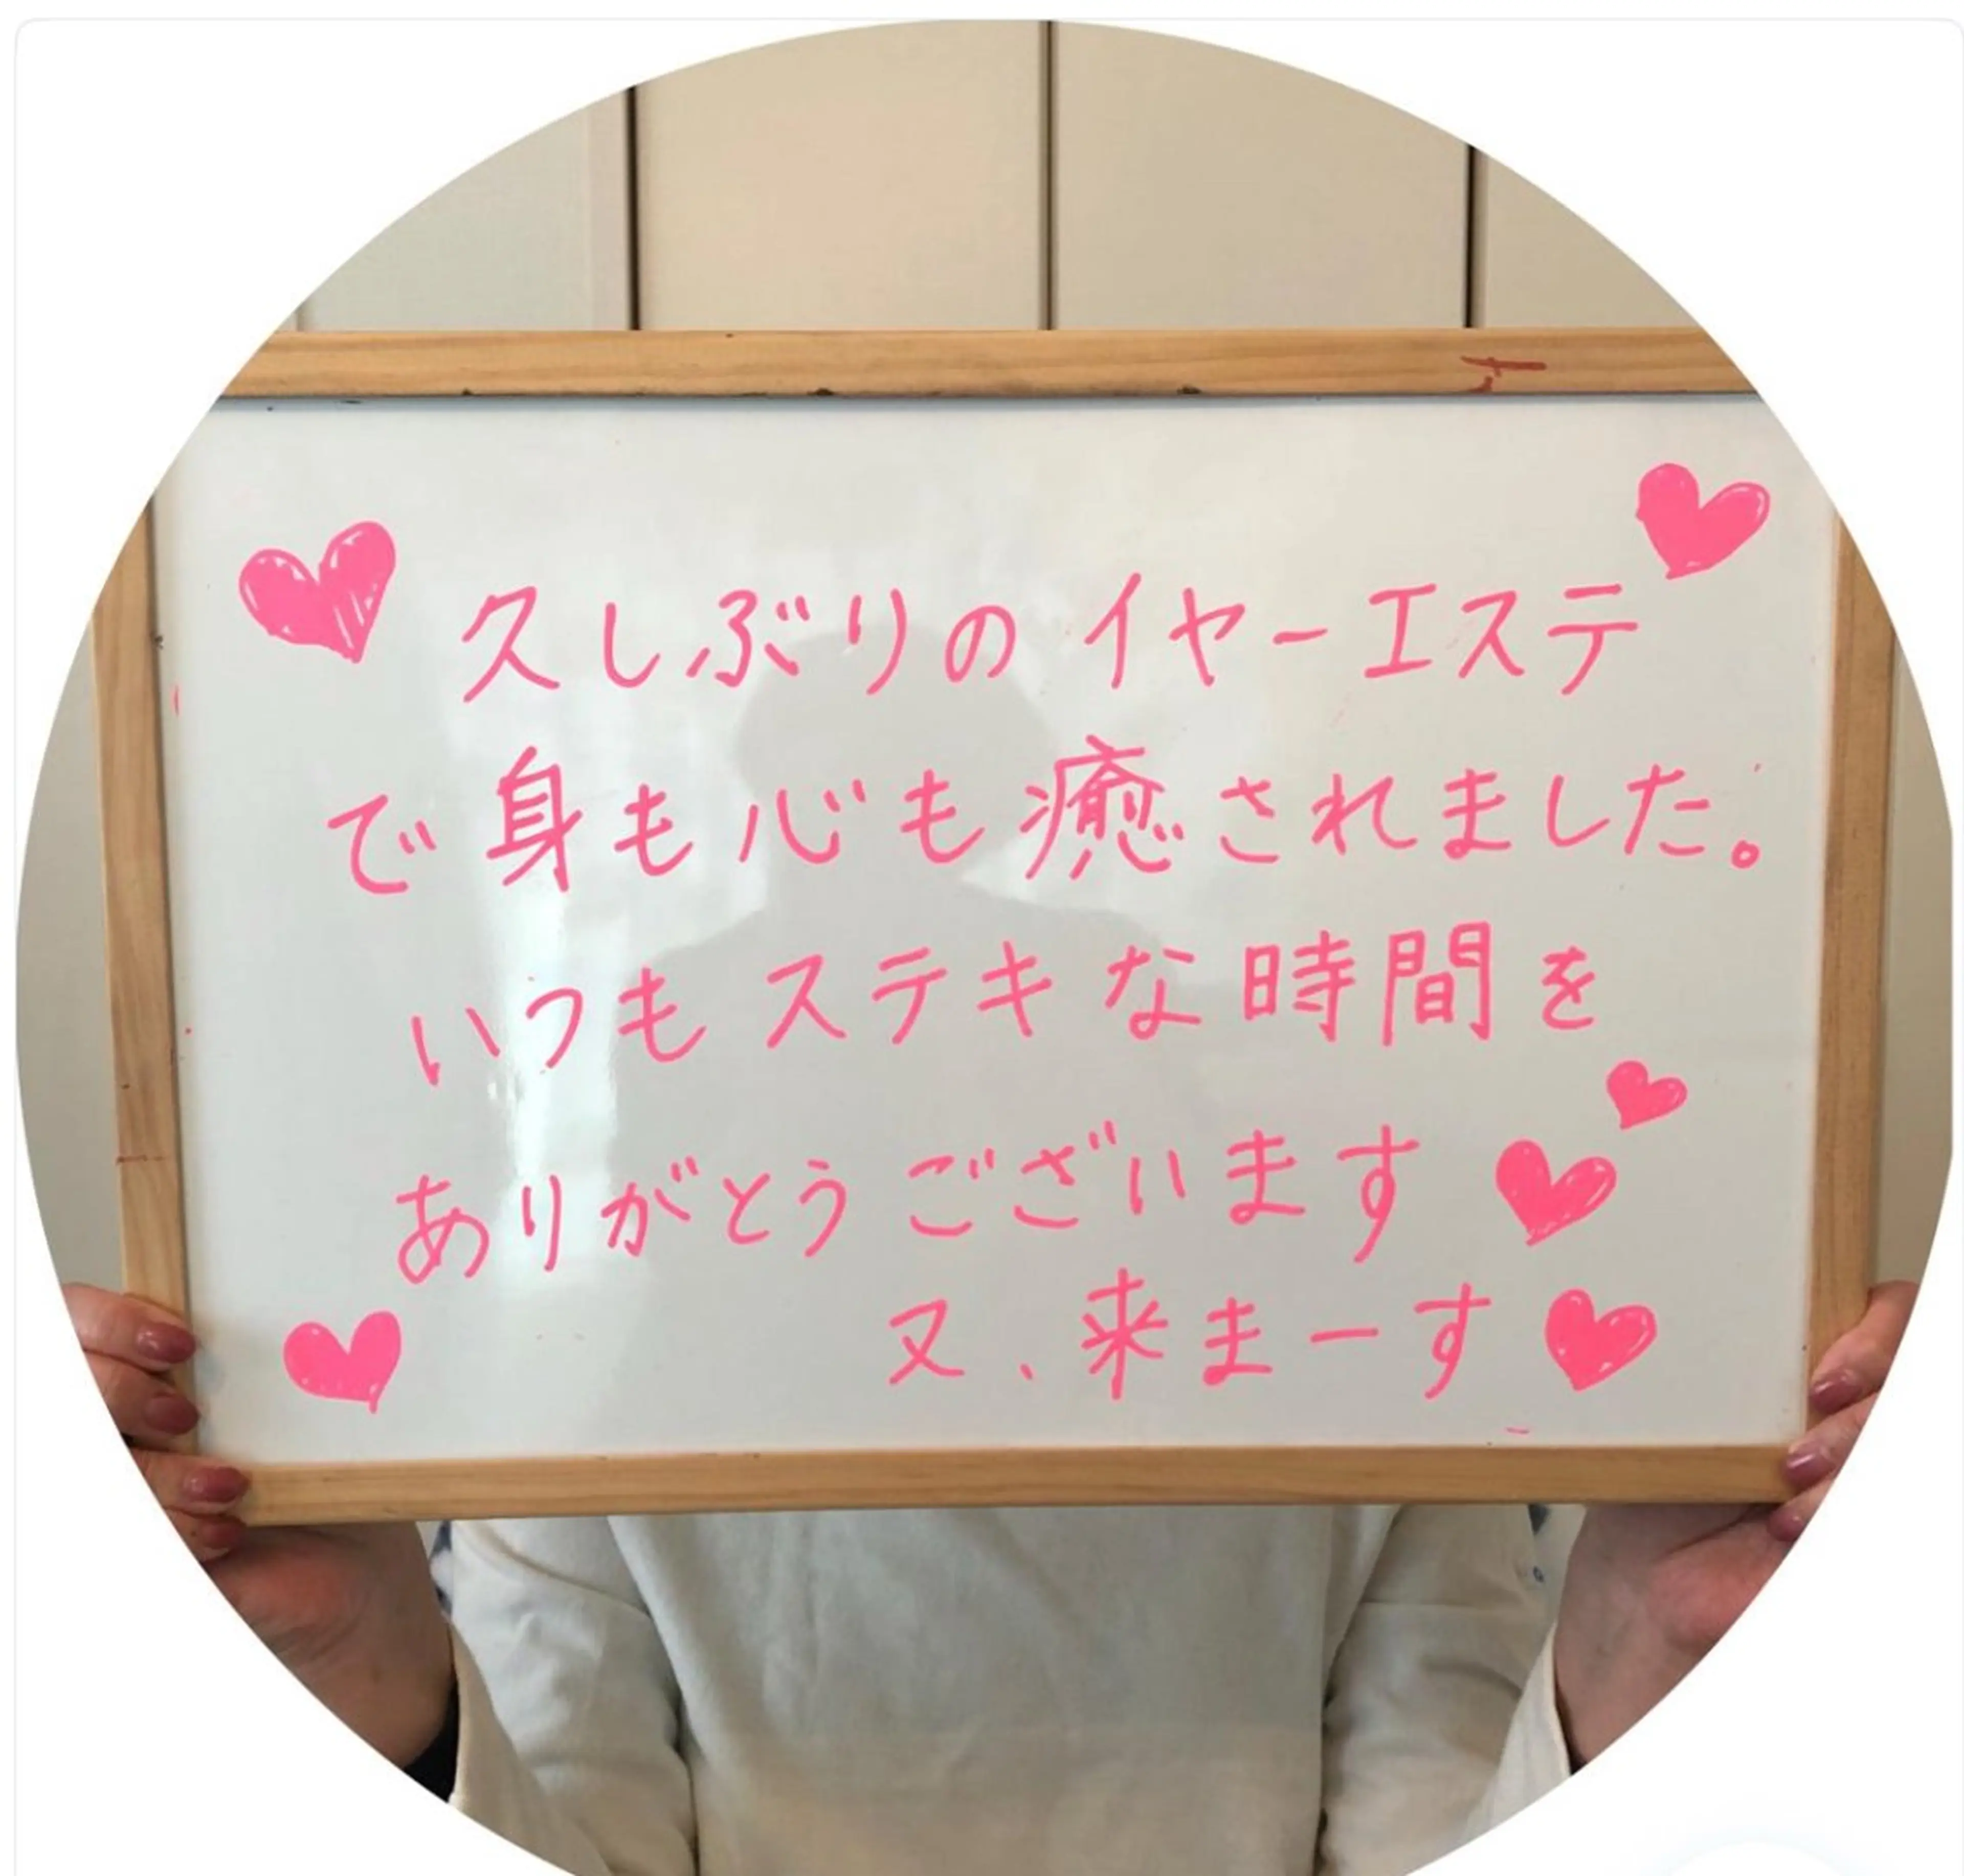 久しぶりのイヤーエステ
で身も心も癒されました。
いつもステキな時間を
ありがとうございます
又、来まーす